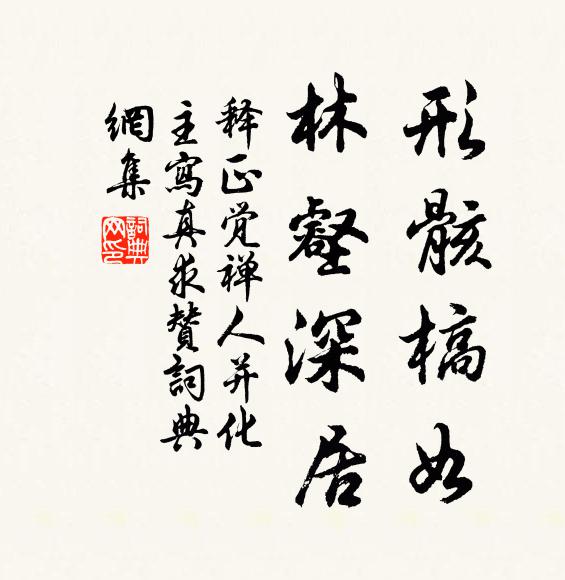 形骸槁如
林壑深居
释正觉禅人并化
主寫真求賛詞典
網集
詞典網印